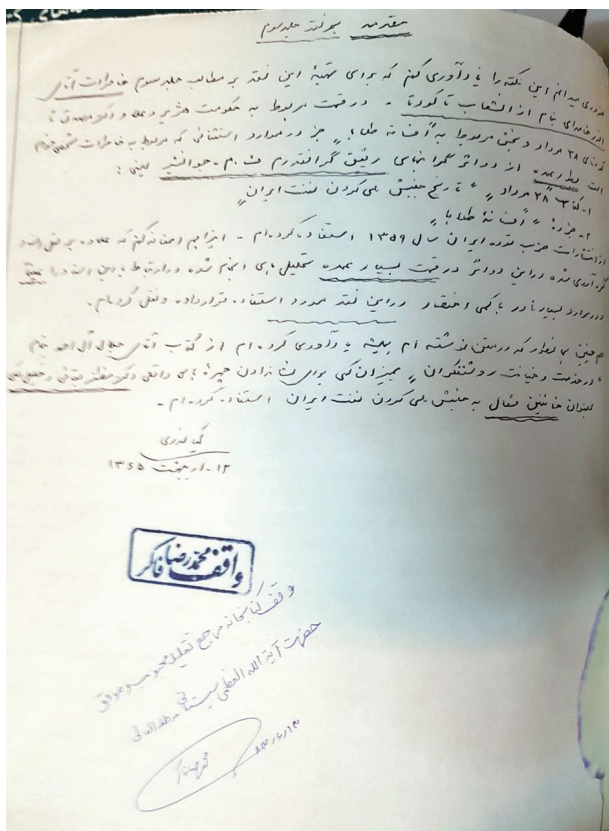 مقدمه بر نقد جلد سوم
ضروری میدانم این نکته را یادآوری کنم که برای تهیهٔ این نقد بر مطالب جلد سوم خاطرات آقای
انور خامه‌ای بنام از انشعاب تا کودتا - در قسمت مربوط به حکومت هژیر و دکتر مصدق تا
کودتای ۲۸ مرداد و بخش مربوط به "افسانه طلاها" جز در موارد استثنائی که مربوط به خاطرات شخصی خودم
است بطور عمده از دو اثر گرانبهای رفیق گرانقدرم ف.م. جوانشیر یعنی:
۱- کتاب ۲۸ مرداد "تاریخ جنبش ملی کردن نفت ایران"
۲- جزوهٔ "افسانهٔ طلاها"
از انتشارات حزب توده ایران سال ۱۳۵۹ استفاده کرده‌ام - اینرا هم اضافه کنم که علاوه بر نقل اسناد
گردآوری شده در این دو اثر در قسمت بسیار عمده تحلیل‌های انجام شده در ارتباط با این اسناد با
در موارد بسیار نادر با کمی اختصار در این نقد مورد استفاده قرار داده و نقل کرده‌ام.
همچنین همانطور که در متن نوشته‌ام همیشه یادآوری کرده‌ام از کتاب آقای جلال آل احمد بنام
"در خدمت و خیانت روشنفکران" بمیزان کمی برای نشان دادن چهره‌های واقعی دکتر مظفر بقائی و خلیل ملکی
بعنوان خائنین فعال به جنبش ملی کردن نفت ایران استفاده کرده‌ام.
۱۲-اردیبهشت ۱۳۶۵
واقف محمدرضا فاکر
وقف کتابخانه مرجع تقلید محبوب و موفق
حضرت آیة الله العظمی سیستانی مدظله العالی